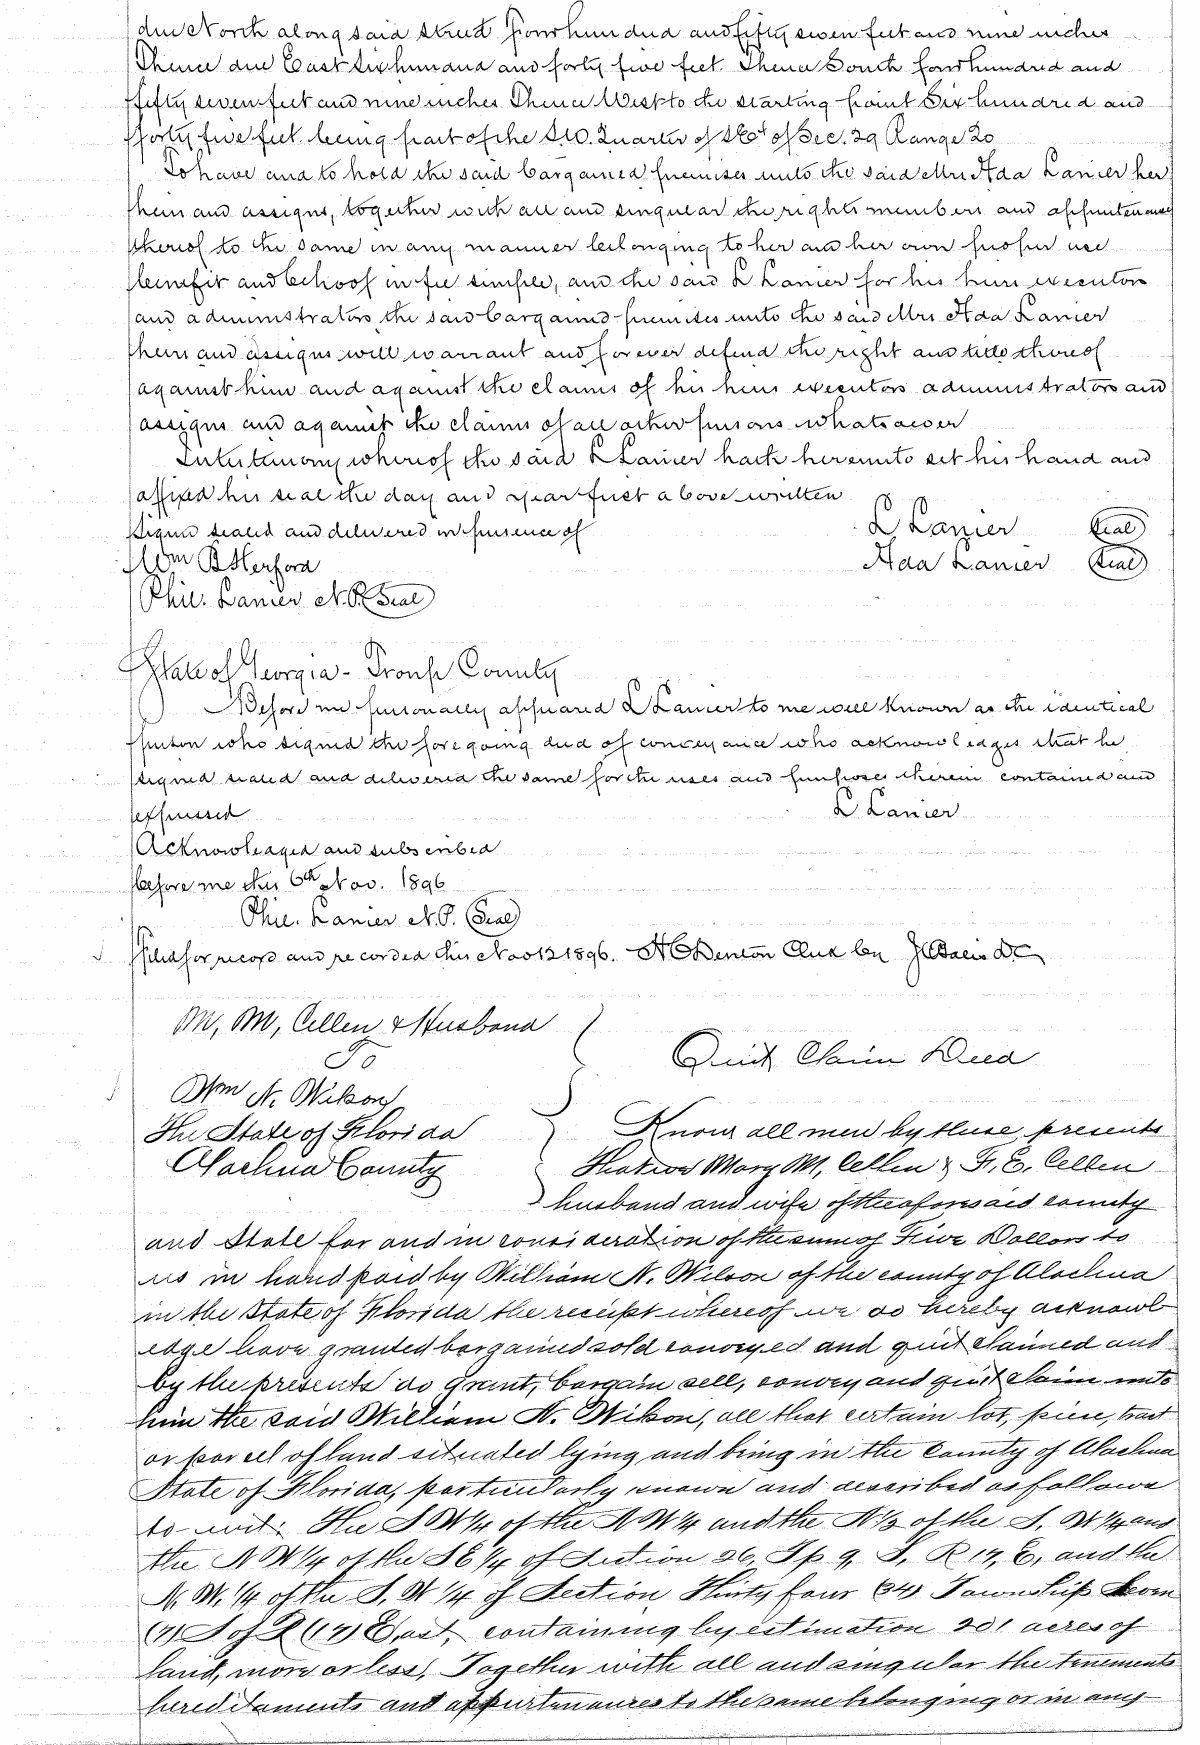 due North along said street four hundred and fifty seven feet and nine inches
Thence due East Six hundred and forty five feet. Thence South four hundred and
fifty seven feet and nine inches Thence West to the starting point Six hundred and
forty five feet being part of the S.W. Quarter of of Sec. 29 Range 20
To have and to hold the said bargained premises unto the said Mrs Ada Lanier her
heirs and assigns, together with all and singular the rights members and appurtenances
thereof to the same in any manner belonging to her and her own proper use
benefit and behoof in fee simple, and the said L Lanier for his heirs executors
and administrators the said bargained premises unto the said Mrs Ada Lanier
heirs and assigns will warrant and forever defend the right and title thereof
against him and against the claims of his heirs executors administrators and
assigns and against the claims of all other persons whatsoever
In testimony whereof the said L Lanier hath hereunto set his hand and
affixed his seal the day and year first above written
Signed sealed and delivered in presence of
L Lanier (Seal)
Wm B Herford
Ada Lanier (Seal)
Phil. Lanier N.P. (Seal)
State of Georgia - Troup County
Before me personally appeared L Lanier to me well known as the identical
person who signed the foregoing deed of conveyance who acknowledges that he
signed sealed and delivered the same for the uses and purposes therein contained and
expressed
L Lanier
Acknowledged and subscribed
before me this 6th Nov. 1896
Phil. Lanier N.P. (Seal)
Filed for record and recorded this Nov 12 1896. H C Denton Clerk by D.C.
M, M, Cellen & Husband
To
Quit Claim Deed
Wm N. Wilson
The State of Florida
Alachua County
Know all men by these presents
That we Mary M, Cellen & F. E. Cellen
husband and wife of the aforesaid county
and State for and in consideration of the sum of Five Dollars to
us in hand paid by William N. Wilson of the county of Alachua
in the State of Florida the receipt whereof we do hereby acknowl
edge have granted bargained sold conveyed and quit claimed and
by the presents do grant, bargain sell, convey and quit claim unto
him the said William N. Wilson, all that certain lot, piece, tract
or parcel of land situated lying and being in the county of Alachua
State of Florida, particularly known and described as follows
to-wit: The S W 1/4 of the N W 1/4 and the N 1/2 of the S. W 1/4 and
the N W 1/4 of the S E 1/4 of Section 26, Tp 9, S, R 17, E, and the
N. W. 1/4 of the S. W 1/4 of Section Thirty four (34) Township Seven
(7) S of R (17) East, containing by estimation 201 acres of
land, more or less, Together with all and singular the tenements
hereditaments and appurtenances to the same belonging or in any